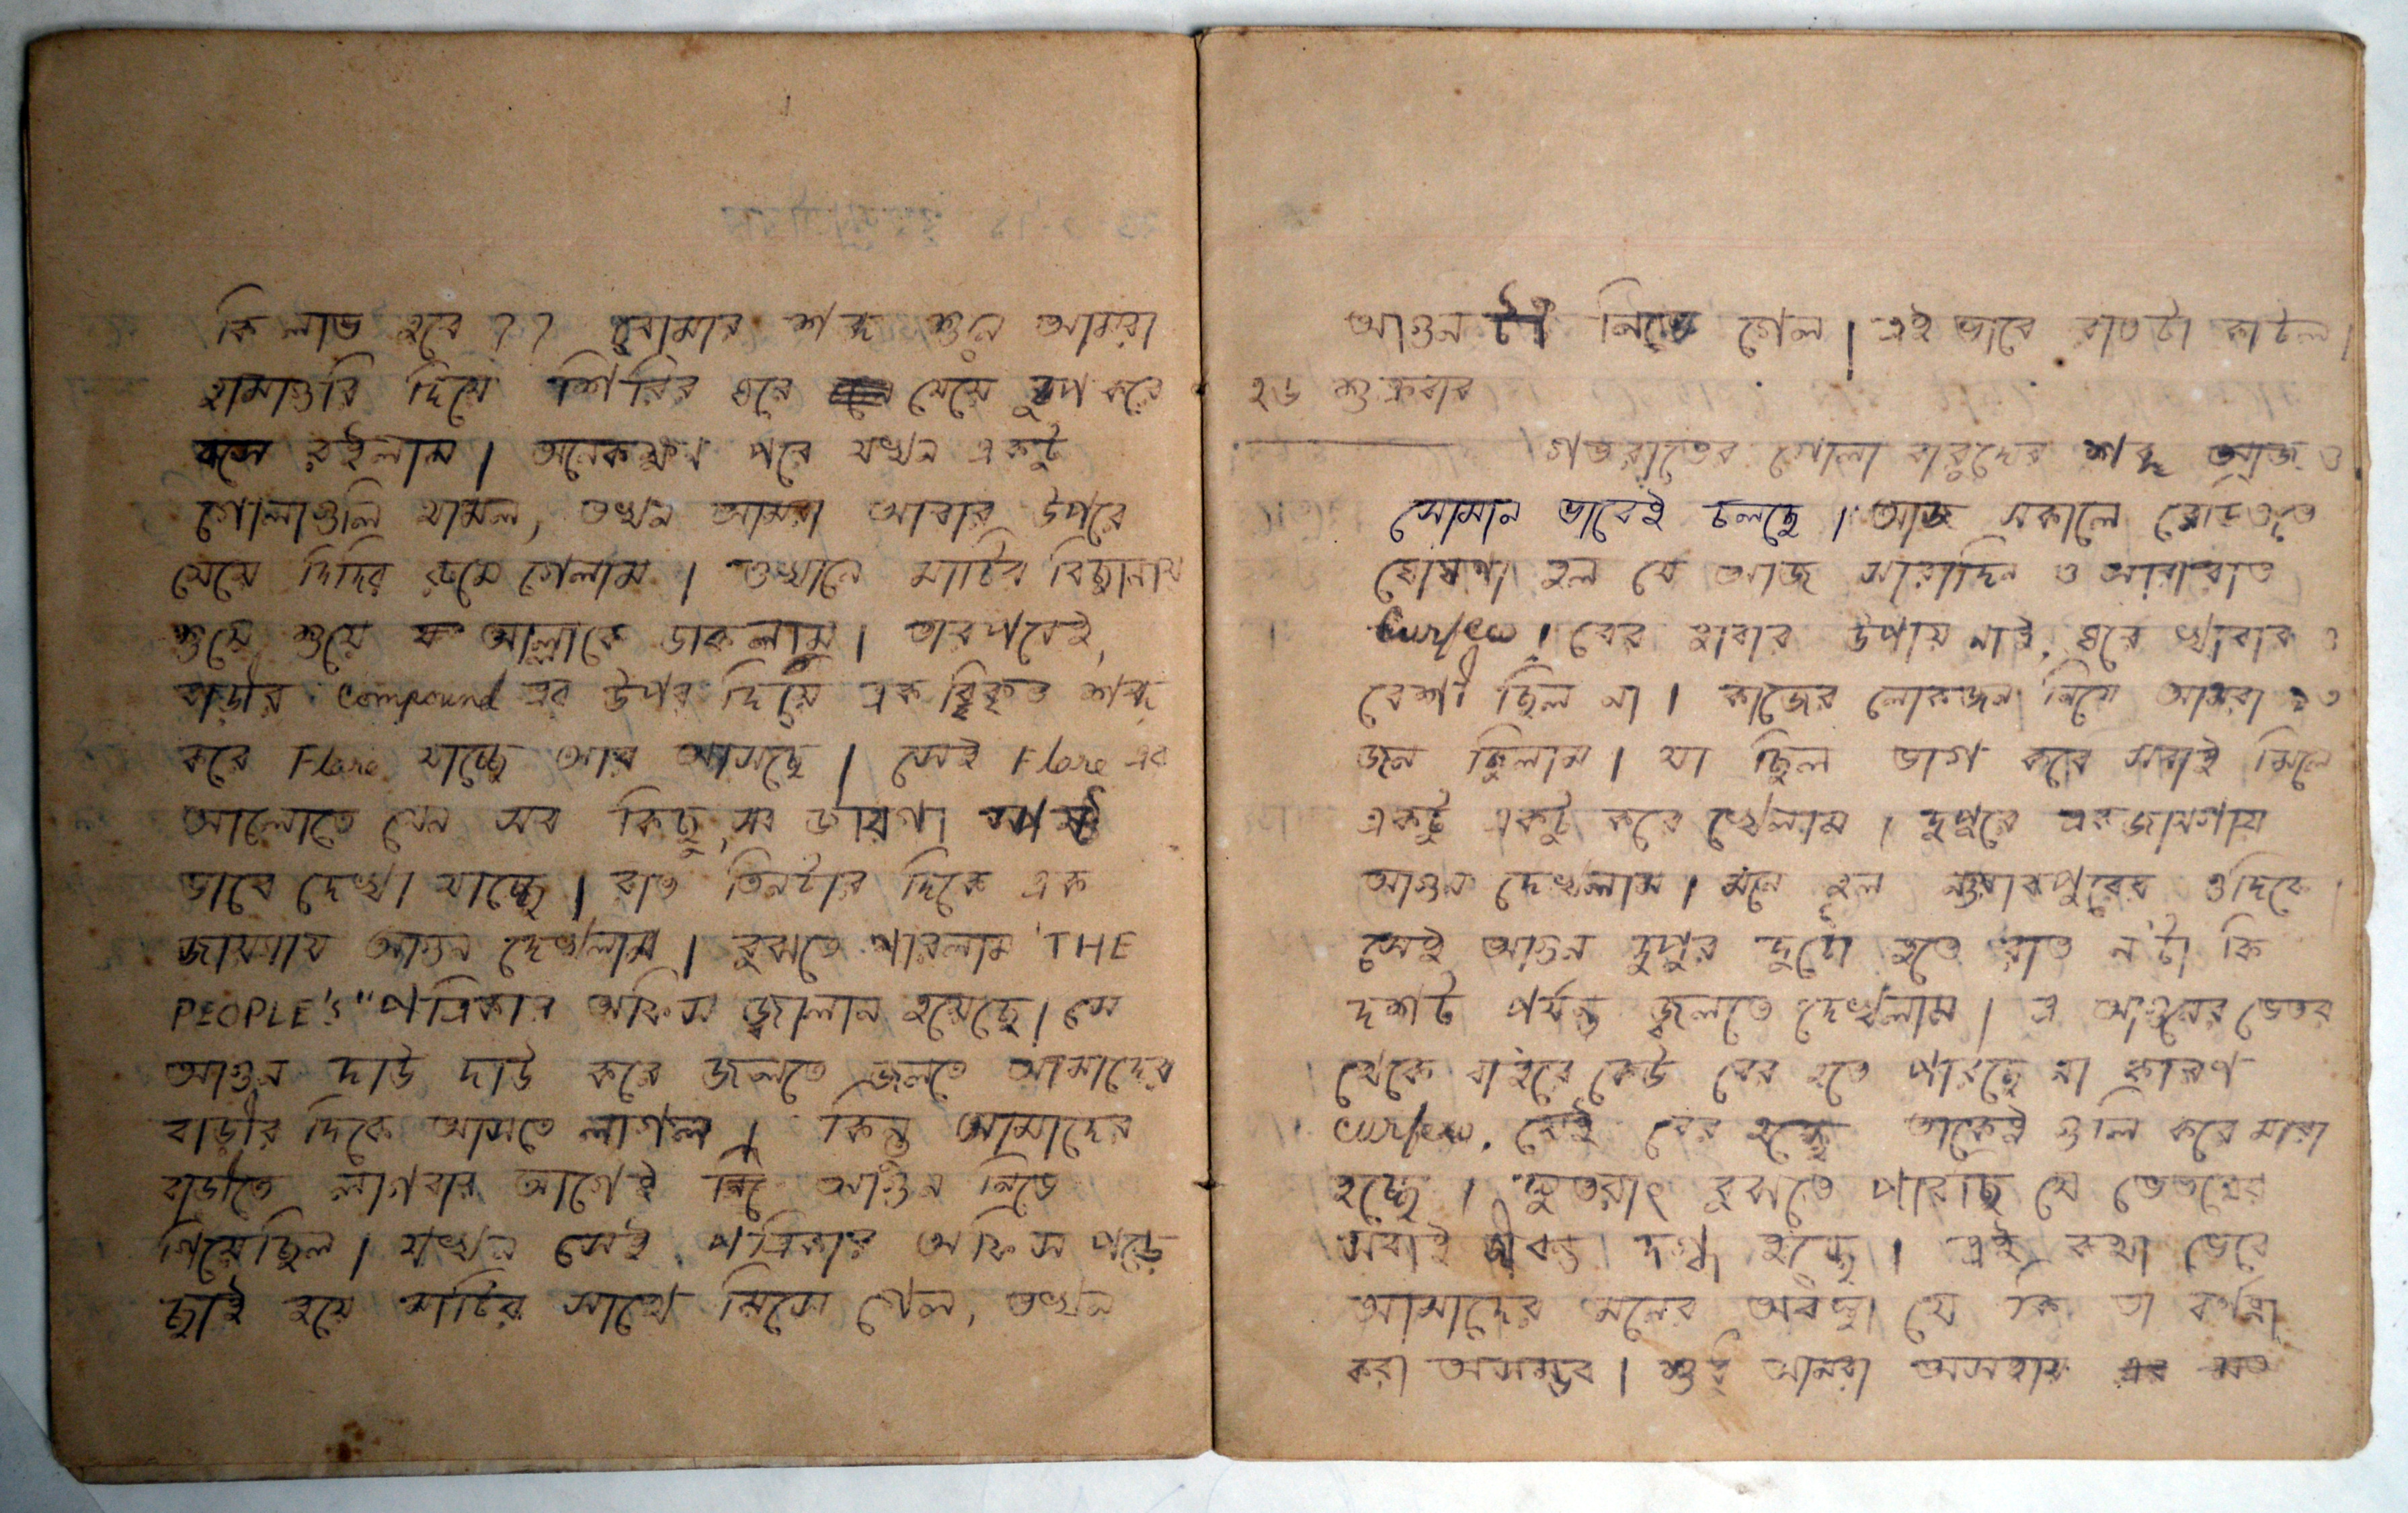 কি লাভ হবে ?? বোমার শব্দ শুনে আমরা
হামাগুরি দিয়ে শিরির ঘরে যেয়ে চুপ করে
বসে রইলাম। অনেকক্ষণ পরে যখন একটু
গোলাগুলি থামল, তখন আমরা আবার উপরে
যেয়ে দিদির রুমে গেলাম। ওখানে মাটির বিছানায়
শুয়ে শুয়ে আল্লাকে ডাকলাম। তারপরেই,
বাড়ীর Compound এর উপর দিয়ে এক বিকৃত শব্দ
করে Flare যাচ্ছে আর আসছে। সেই Flare এর
আলোতে যেন সব কিছু, সব জায়গা স্পষ্ট
ভাবে দেখা যাচ্ছে। রাত তিনটার দিকে এক
জায়গায় আগুন দেখলাম। বুঝতে পারলাম 'THE
PEOPLE'S" পত্রিকার অফিস জ্বালান হয়েছে। সে
আগুন দাউ দাউ করে জলতে জলতে আমাদের
বাড়ীর দিকে আসতে লাগল। কিন্তু আমাদের
বাড়ীতে লাগবার আগেই আগুন নিভে
গিয়েছিল। যখন সেই পত্রিকার অফিস পড়ে
ছাই হয়ে মাটির সাথে মিসে গেল, তখন
আগুন টা নিভে গেল। এই ভাবে রাতটা কাটল।
২৬ শুক্রবার
গতরাতের গোলা বারুদের শব্দ আজও
সোমান ভাবেই চলছে। আজ সকালে রেডিওতে
ঘোষণা হল যে আজ সারাদিন ও সারারাত
Curfew। বের হাবার উপায় নাই, ঘরে খাবার ও
বেশী ছিল না। কাজের লোকজন নিয়ে আমরা ১৩
জন ছিলাম। যা ছিল ভাগ করে সবাই মিলে
একটু একটু করে খেলাম। দুপুরে একজায়গায়
আগুন দেখলাম। মনে হল নওয়াবপুরের ওদিকে।
সেই আগুন দুপুর দুটো হতে রাত ন'টা কি
দশটা পর্যন্ত জ্বলতে দেখলাম। এ আগুনের ভেতর
থেকে বাইরে কেউ বের হতে পারছে না কারণ
curfew. যেই বের হচ্ছে তাকেই গুলি করে মারা
হচ্ছে। সুতরাং বুঝতে পারছি যে ভেতরের
সবাই জীবন্ত দগ্ধ হচ্ছে। এই কথা ভেবে
আমাদের মনের অবস্থা যে কি তা বর্ণনা
করা অসম্ভব। শুধু আমরা অসহায় এর মত